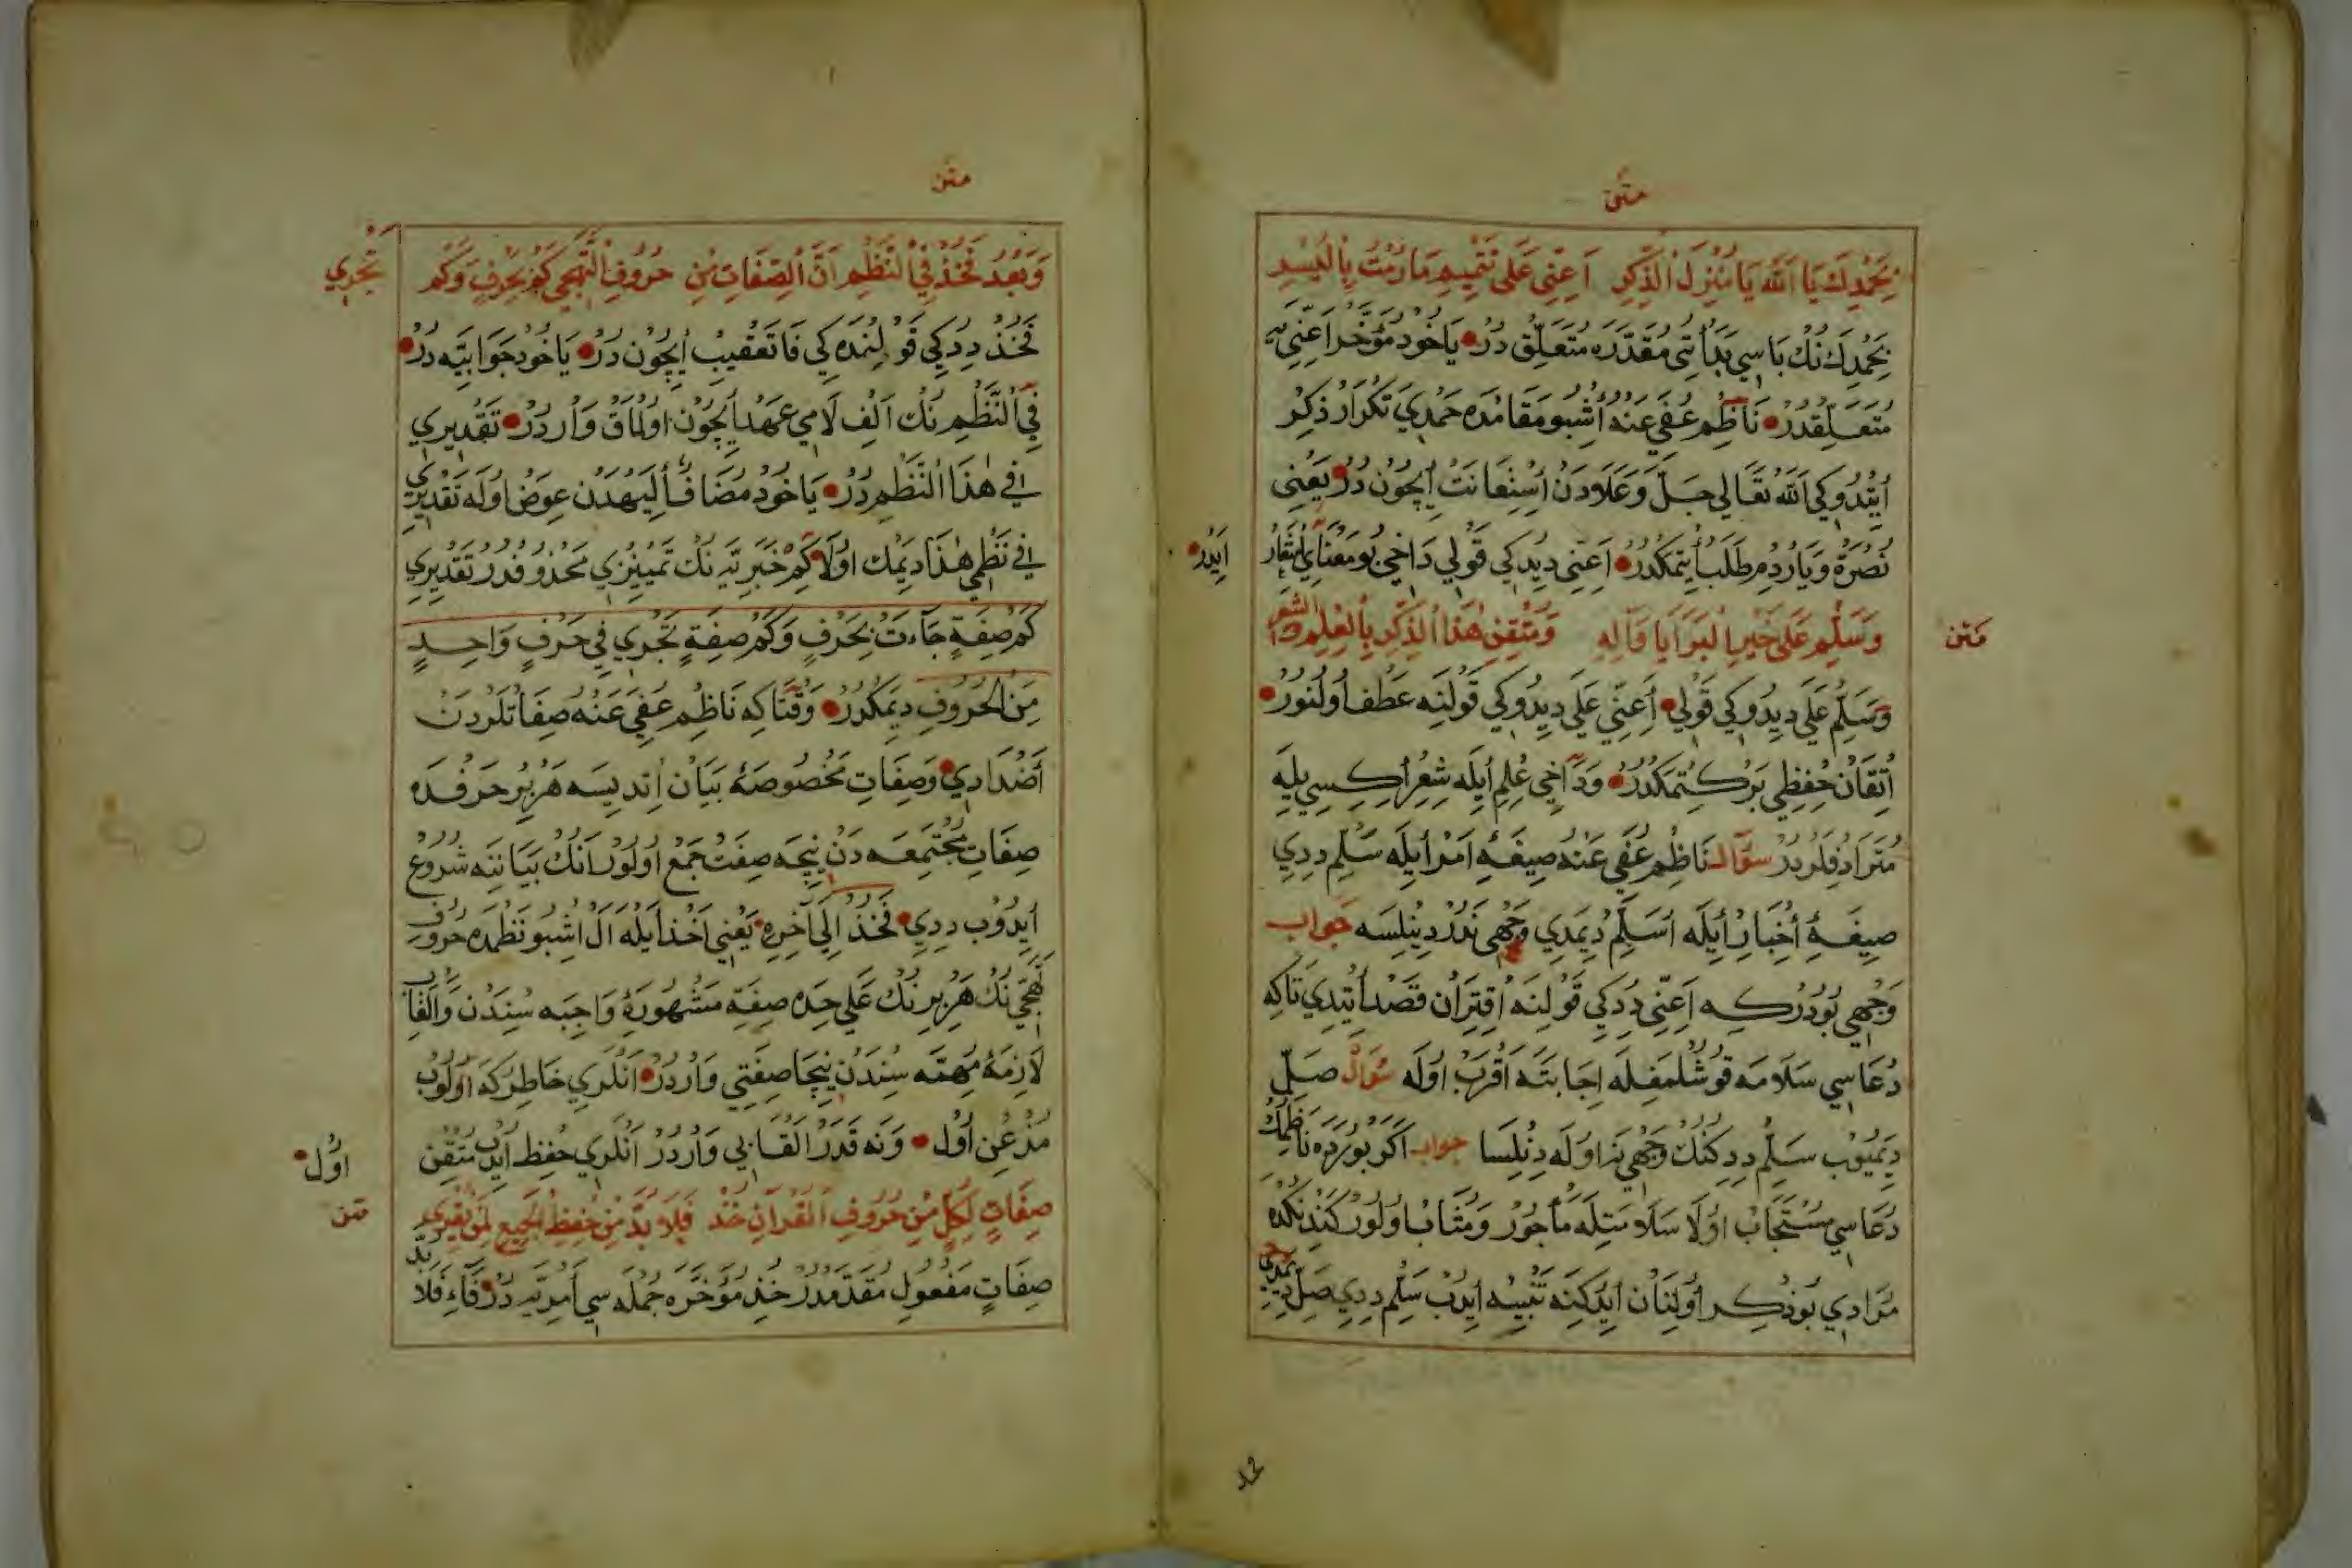 متن
بِحَمْدِكَ يَا اَللّٰهُ يَا مُنْزِلَ الذِّكْرِ اَعِنِّي عَلٰى تَتْمِيمِ مَا رُمْتُ بِالْيُسْرِ
بِحَمْدِكَ نُكْ بَاسِي بَدَأْتِي مُقَدَّرَه مُتَعَلِّق دُرْ يَاخُودْ مُؤَخَّرْ اَعِنِّي يَه
مُتَعَلِّقْدُرْ نَاظِمْ عُفِيَ عَنْهُ اُشْبُو مَقَامْدَه حَمْدِي تَكْرَارْ ذِكْرْ
اِيتْدُوكِي اَللّٰه تَعَالٰي جَلَّ وَعَلَادَنْ اِسْتِعَانَتْ اِيچُونْ دُرْ يَعْنِي
نُصْرَةْ وَيَارْدُمْ طَلَبْ اِيتْمَكْدُرْ اَعِنِّي دِيدِكِي قَوْلِي دَاخِي بُو مَعْنَايِي اِشْعَارْ
اَيْدَرْ
متن
وَسَلِّمْ عَلٰى خَيْرِ الْبَرَايَا وَآلِهِ وَمُتْقِنِ هٰذَا الذِّكْرِ بِالْعِلْمِ وَالشِّعْرِ
وَسَلِّمْ عَلَي دِيدُوكِي قَوْلِي اَعِنِّي عَلَي دِيدُوكِي قَوْلِنَه عَطْف اُولُنُورْ
اِتْقَانْ حِفْظِي بَرْكِتْمَكْدُرْ وَدَاخِي عِلْم اِيلَه شِعْر اِكِيسِي بِيلَه
مُتَرَادِفْلَرْدُرْ سؤال نَاظِمْ عُفِيَ عَنْهُ صِيغَهٔ اَمْر اِيلَه سَلِّمْ دِدِي
صِيغَهٔ اِخْبَارْ اِيلَه اُسَلِّمُ دِيمَدِي وَجْهِي نَدُرْ دِينِلِسَه جواب
وَجْهِي بُودُرْكِه اَعِنِّي دِدِكِي قَوْلِنَه اِقْتِرَانْ قَصْد اِيتْدِي تَاكِه
دُعَاسِي سَلَامَه قُوشُلْمَغِلَه اِجَابَتَه اَقْرَبْ اُولَه سُؤَالْ صَلِّ
دِيمَيُوبْ سَلِّمْ دِدِكِنُكْ وَجْهِي نَه اُولَه دِنِلِسَا جواب اَكَرْ بُو يَرْدَه نَاظِمُكْ
دُعَاسِي مُسْتَجَابْ اُولَا سَلَامَتِلَه مَأْجُورْ وَمُثَابْ اُولُورْ كَنْدُنُكْدَه
مُرَادِي بُو ذِكْر اُولُنَانْ اَيْدُكِنَه تَنْبِيه اِيدُبْ سَلِّمْ دِدِي صَلِّ دِيمَدِي
متن
وَبَعْدُ فَخُذْ فِي النَّظْمِ اَنَّ الصِّفَاتِ مِنْ حُرُوفِ التَّهَجِّي كَمْ بِحَرْفٍ وَكَمْ
تَجْرِي
فَخُذْ دِدِكِي قَوْلِنْدَه كِي فَا تَعْقِيبْ اِيچُونْ دُرْ يَاخُودْ جَوَابِيَّه دُرْ
فِي النَّظْمِ نُكْ اَلِفْ لَامِي عَهْد اِيچُونْ اُولْمَاقْ وَارْدُرْ تَقْدِيرِي
فِي هٰذَا النَّظْمِ دُرْ يَاخُودْ مُضَافْ اِلَيْهْدَنْ عِوَضْ اُولَه تَقْدِيرِي
فِي نَظْمِي هٰذَا دِيمَكْ اُولَا كَمْ خَبَرِيَّه نُكْ تَمْيِيزِي مَحْذُوفْدُرْ تَقْدِيرِي
كَمْ صِفَةٍ جَاءَتْ بِحَرْفٍ وَكَمْ صِفَةٍ تَجْرِي فِي حَرْفٍ وَاحِدٍ
مِنَ الْحُرُوفِ دِيمَكْدُرْ وَقْتَاكِه نَاظِمْ عُفِيَ عَنْهُ صِفَاتْلَرْدَنْ
أَضْدَادِي وَصِفَاتِ مَخْصُوصَهٔ بَيَانْ اِتْدِيسَه هَرْ بِرْ حَرْفْدَه
صِفَاتِ مُجْتَمِعَه دَنْ نِيچَه صِفَتْ جَمْعْ اُولُورْ اَنُكْ بَيَانِنَه شُرُوعْ
اِيدُوبْ دِدِي فَخُذْ اِلَي آخِرِهِ يَعْنِي اَخْذ اَيْلَه اَلْ اُشْبُو نَظْمْدَه حُرُوفِ
تَهَجِّي نُكْ هَرْ بِرِنُكْ عَلَي حِدَه صِفَةِ مَشْهُورَهٔ وَاجِبَه سُنْدَنْ وَاَلْقَابِ
لَازِمَهٔ مُهِمَّه سُنْدَنْ نِيچَا صِفَتِي وَارْدُرْ اَنْلَرِي خَاطِرْكَه اُولُوبْ
مُذْعِنْ اُولْ وَنَه قَدَرْ اَلْقَابِي وَارْدُرْ اَنْلَرِي حِفْظ اِيدُبْ مُتْقِنْ
اُولْ
متن
صِفَاتٍ لِكُلٍّ مِنْ حُرُوفِ الْقُرْآنِ خُذْ فَلَا بُدَّ مِنْ حِفْظِ الْجَمِيعِ لِمَنْ يُقْرِي
صِفَاتٍ مَفْعُولِ مُقَدَّمْدُرْ خُذْ مُؤَخَّرَه جُمْلَه سِي اَمْرِيَّه دُرْ فَاءِ فَلَا بُدَّ